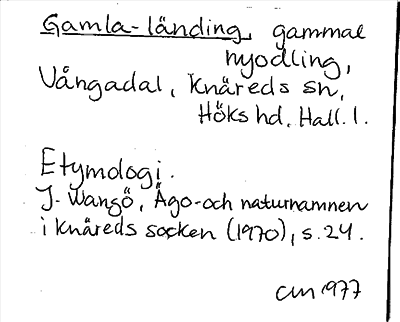 Gamla-länding, gammal
nyodling,
Vångadal, Knäreds sn,
Höks hd, Hall. l.
Etymologi.
J. Wangö, Ägo- och naturnamnen
i Knäreds socken (1970), s. 24.
CM 1977